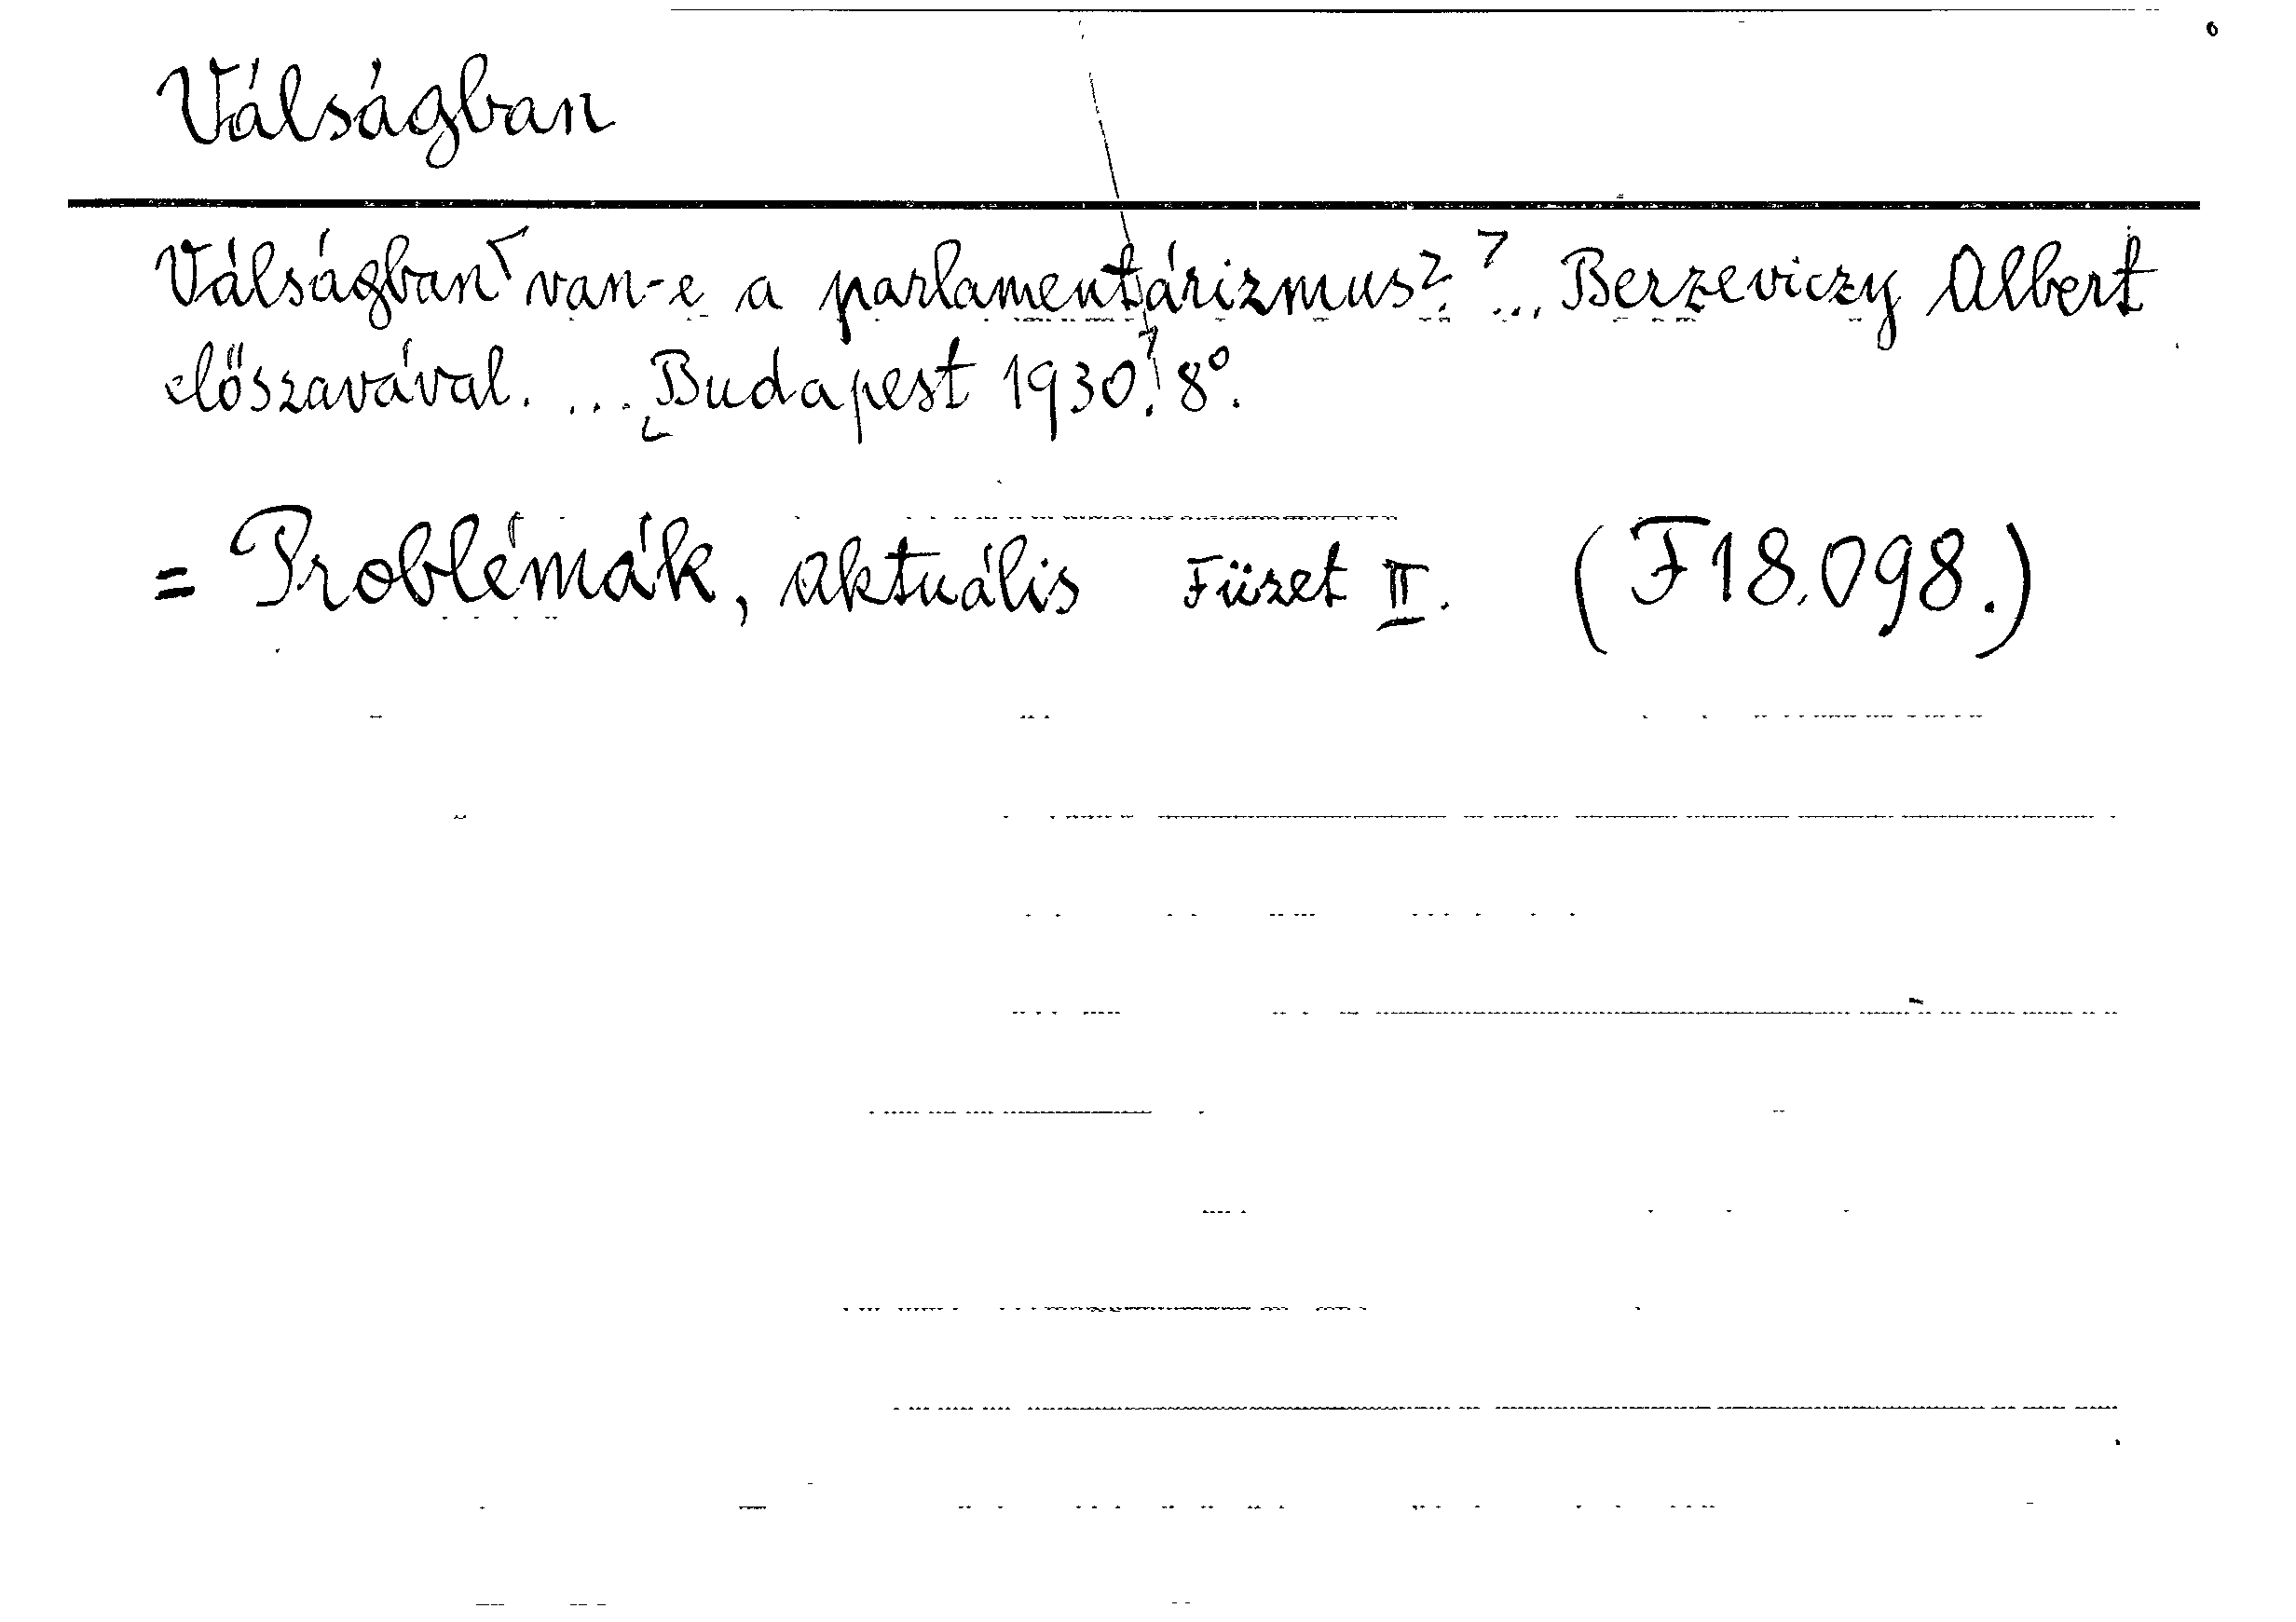 Válságban
Válságban ⌈van-e a parlamentárizmus?⌉ ... Berzeviczy Albert
előszavával. ... ⌊Budapest 1930⌉. 8°.
= Problémák, aktuális Füzet II. (F18.098.)